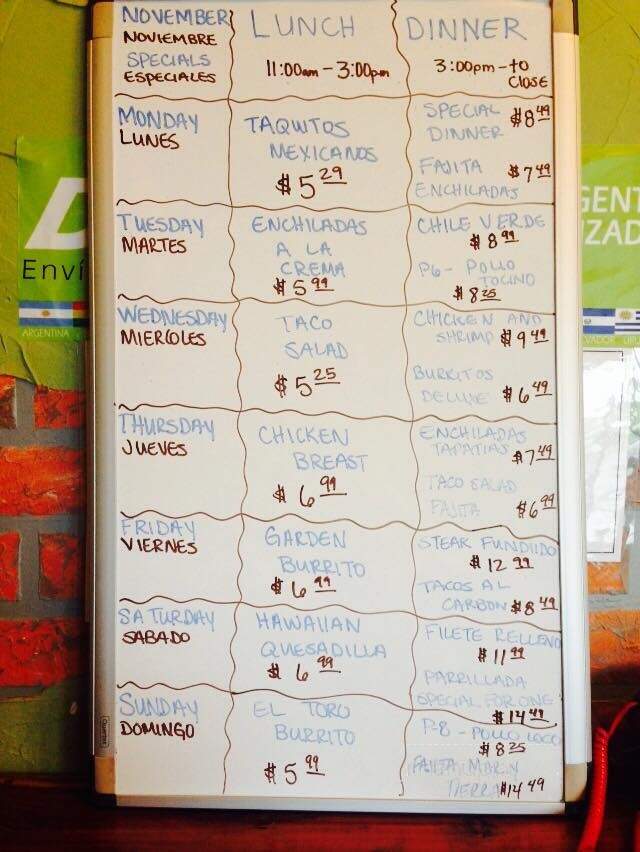 NOVEMBER
NOVIEMBRE
SPECIALS
ESPECIALES
LUNCH
11:00am - 3:00pm
DINNER
3:00pm - to
CLOSE
MONDAY
LUNES
TAQUITOS
MEXICANOS
$5 29
SPECIAL $8 49
DINNER
FAJITA $7 49
ENCHILADAS
TUESDAY
MARTES
ENCHILADAS
A LA
CREMA
$5 99
CHILE VERDE
$8 99
P6 - POLLO
TOCINO
$8 25
WEDNESDAY
MIERCOLES
TACO
SALAD
$5 25
CHICKEN AND
SHRIMP $9 49
BURRITOS
DELUXE $6 49
THURSDAY
JUEVES
CHICKEN
BREAST
$6 99
ENCHILADAS
TAPATIAS $7 49
TACO SALAD
FAJITA $6 99
FRIDAY
VIERNES
GARDEN
BURRITO
$6 99
STEAK FUNDIDO
$12 99
TACOS AL
CARBON $8 49
SATURDAY
SABADO
HAWAIIAN
QUESADILLA
$6 99
FILETE RELLENO
$11 99
PARRILLADA
SPECIAL FOR ONE
$14 49
SUNDAY
DOMINGO
EL TORO
BURRITO
$5 99
P-8 - POLLO LOCO
$8 25
FAJITA MAR Y
TIERRA $14 49
Enví
ARGENTINA
GENT
IZAD
VADOR URU
Quartet